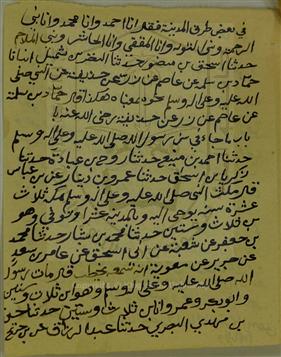 في بعض طرق المدينة فقال انا محمد وانا احمد وانا نبي
الرحمة ونبي التوبة وانا المقفى وانا الحاشر ونبي الملاحم
حدثنا اسحق بن منصور حدثنا النضر بن شميل انبانا
حماد بن سلمة عن عاصم عن زر عن حذيفة عن النبي صلى
الله عليه وعلى اله وسلم نحوه بمعناه هكذا قال حماد بن سلمة
عن عاصم عن زر عن حذيفة رضي الله عنه
باب ما جاء في سن رسول الله صلى الله عليه وعلى اله وسلم
حدثنا احمد بن منيع حدثنا روح بن عبادة حدثنا
زكريا بن اسحق حدثنا عمرو بن دينار عن بن عباس
قال مكث النبي صلى الله عليه وعلى اله وسلم بمكة ثلاث
عشرة سنة يوحى اليه وبالمدينة عشرا وتوفي وهو
بن ثلاث وستين حدثنا محمد بن بشار حدثنا محمد
بن جعفر عن شعبة عن ابي اسحق عن عامر بن سعد
عن جرير عن معوية انه سمعه يخطب قال مات رسول
الله صلى الله عليه وعلى اله وسلم وهو ابن ثلاث وستين
وابو بكر وعمر وانا ابن ثلاث وستين حدثنا حسين
بن مهدي البصري حدثنا عبد الرزاق عن بن جريج